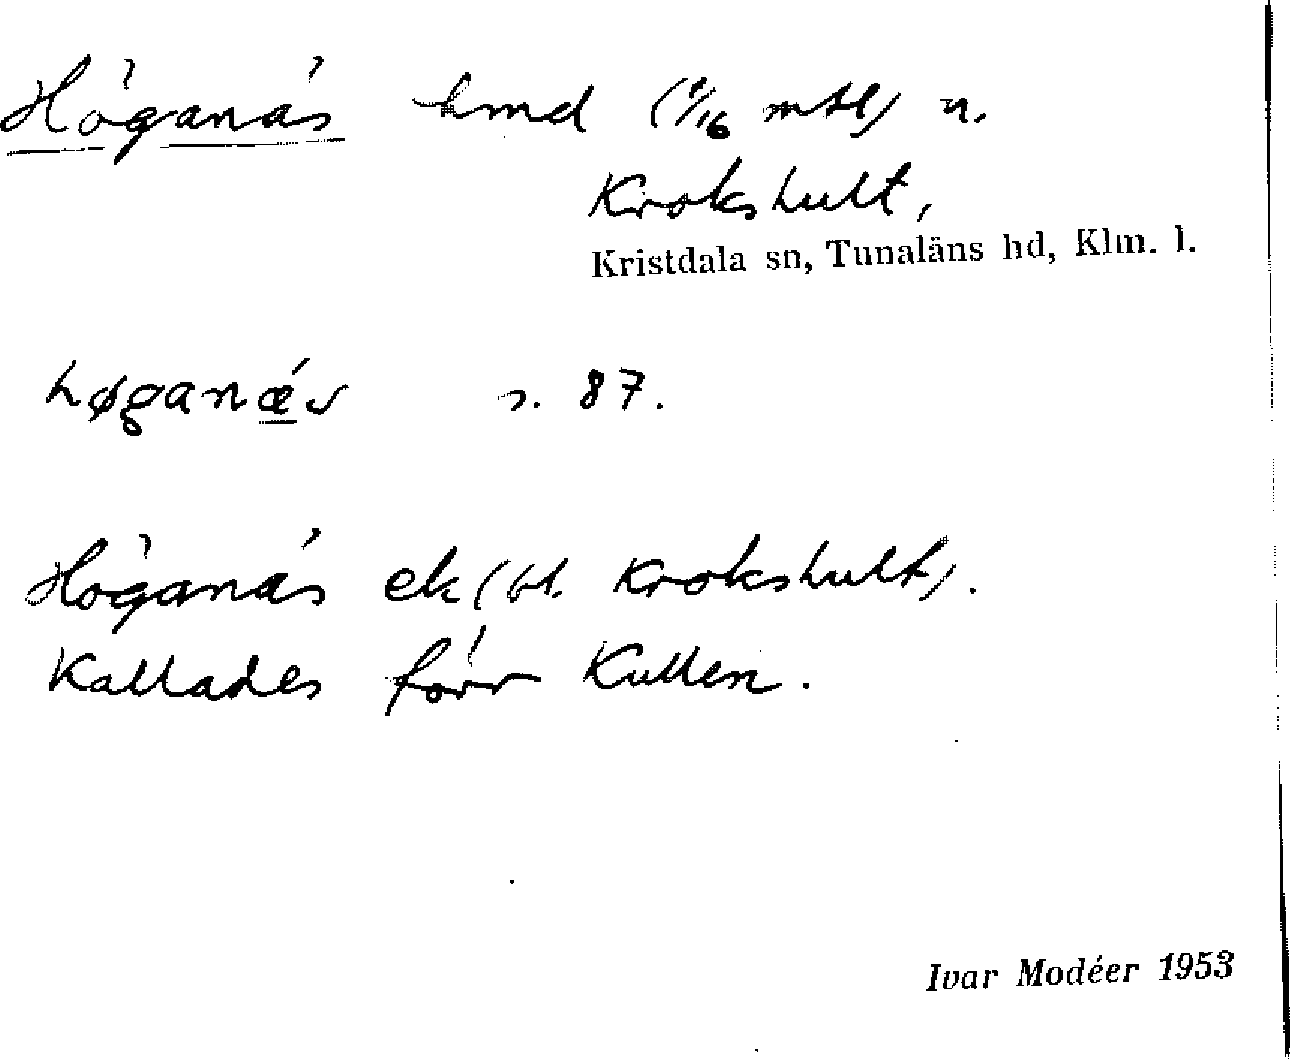 Höganäs hmd (1/16 mtl) u.
Krokshult,
Kristdala sn, Tunaläns hd, Klm. l.
høganæ´s s. 87.
Höganäs ek (bl. Krokshult).
Kallades förr Kullen.
Ivar Modéer 1953